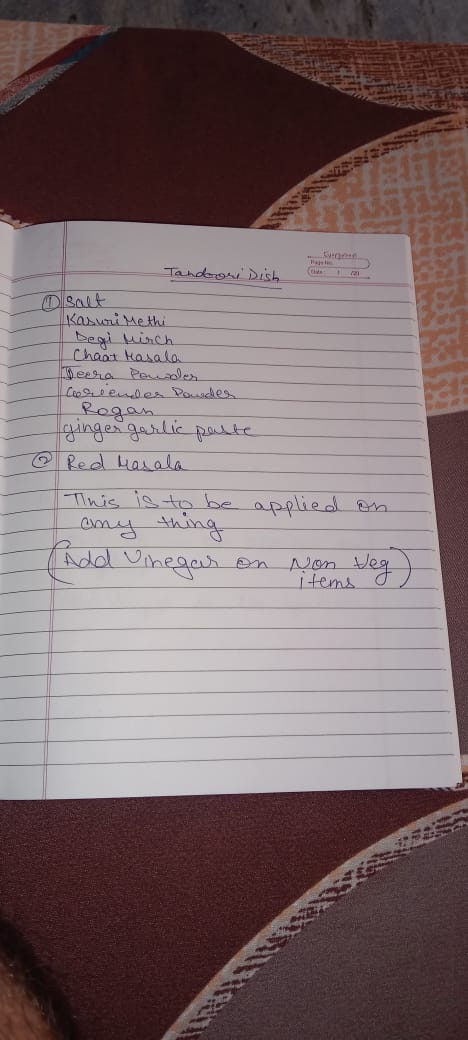 Evergreen
Page No.
Date: / /20
Tandoori Dish
① Salt
Kasuri Methi
Degi Mirch
Chaat Masala
Jeera Powder
Coriender Powder
Rogan
ginger garlic paste
② Red Masala
This is to be applied on
any thing
(Add Vinegar on Non Veg
items)